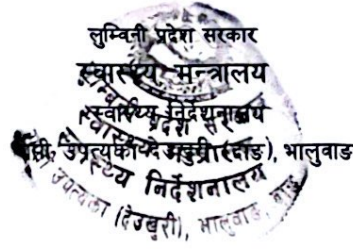 लुम्बिनी प्रदेश सरकार
स्वास्थ्य मन्त्रालय
स्वास्थ्य निर्देशनालय
उपत्यका देउखुरी (दाङ), भालुवाङ
प्रदेश सरकार
स्वास्थ्य निर्देशनालय
उपत्यका (देउखुरी), भालुवाङ, दाङ